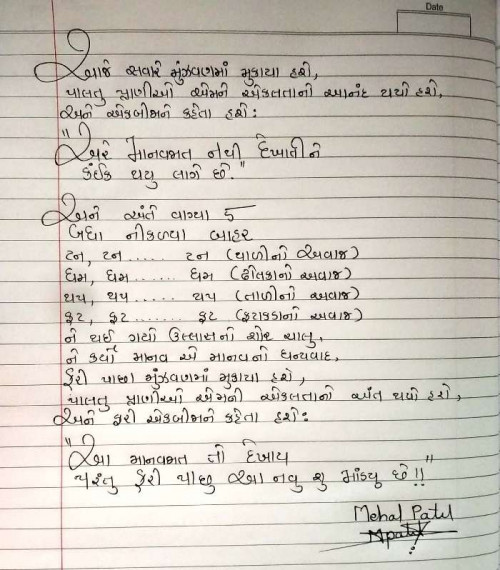 Date
આજે સવારે મુંઝવણમાં મુકાયા હશે,
પાલતુ પ્રાણીઓ એમને એકલતાનો આનંદ થયો હશે,
અને એકબીજાને કહેતા હશે:
"અરે માનવજાત નથી દેખાતીને
કંઈક થયુ લાગે છે."
અને અંતે વાગ્યા 5
બધા નીકળ્યા બાહર
ટન, ટન ...... ટન (થાળીનો અવાજ)
ધમ, ધમ ...... ધમ (ઢોલકાનો અવાજ)
થપ, થપ ...... થપ (તાળીનો અવાજ)
ફટ, ફટ ....... ફટ (ફટાકડાનો અવાજ)
ને થઈ ગયો ઉલ્લાસનો શોર ચાલુ,
ને કર્યો માનવ એ માનવનો ધન્યવાદ,
ફેરી પાછા મુંઝવણમાં મુકાયા હશે,
પાલતુ પ્રાણીઓ એમની એકલતાનો અંત થયો હશે,
અને ફરી એકબીજાને કહેતા હશે:
"આ માનવજાત તો દેખાય
પરંતુ ફેરી પાછુ આ નવુ શુ માંડ્યુ છે!!"
Mehal Patel